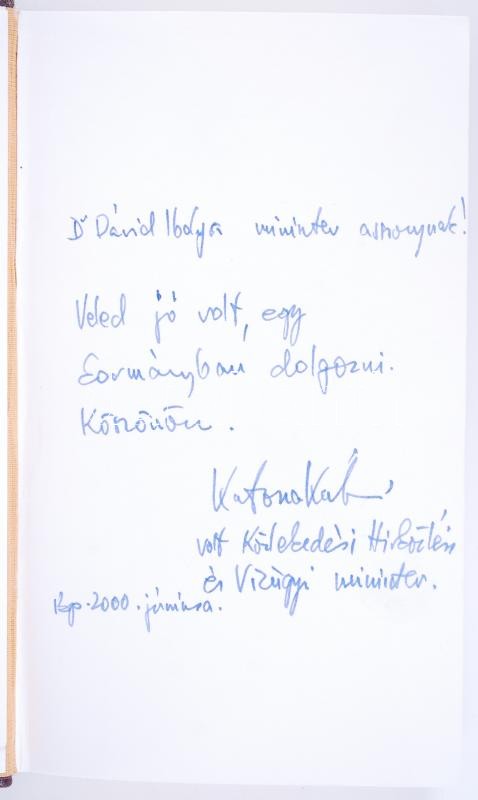 Dr Dávid Ibolya miniszter asszonynak!
Veled jó volt, egy
kormányban dolgozni.
Köszönöm.
Katona Kál
volt Közlekedési Hírközlési
és Vízügyi miniszter.
Bp. 2000. júniusa.